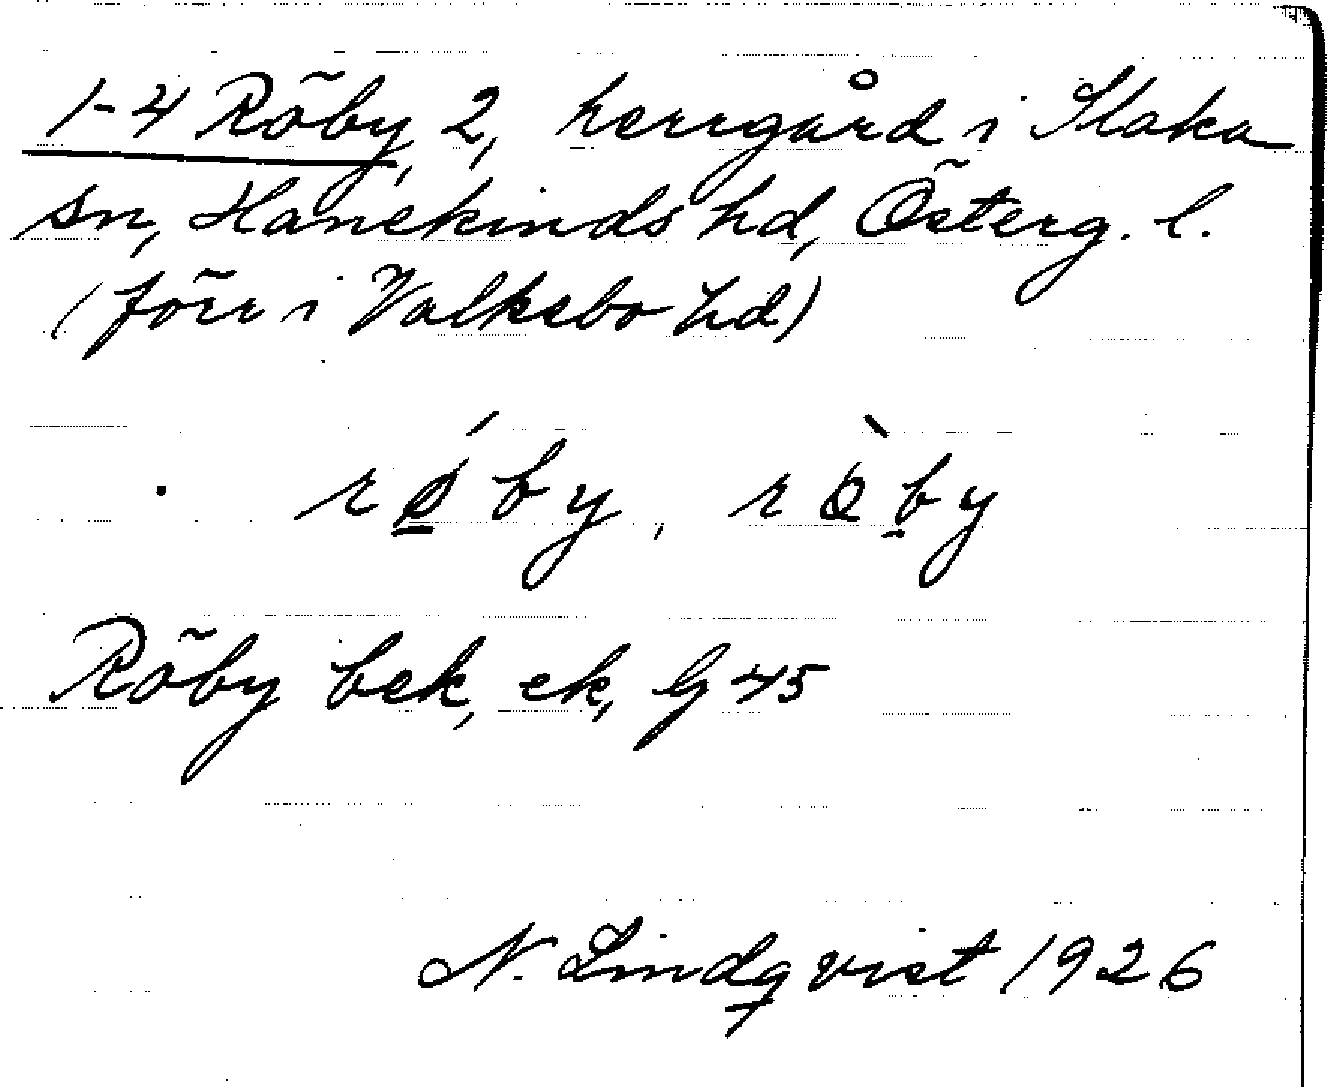 1-4 Röby, 2, herrgård i Slaka
sn, Hanekinds hd, Österg. l.
(förr i Valkebo hd)
rǿby, rø̀by
Röby bek, ek, G 45
N. Lindqvist 1926